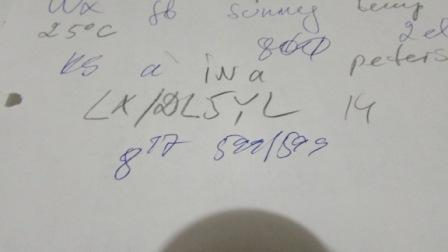 Wx gb sunney temp
25°C 2el
KS a iNa peters
LX/DL5YL 14
8 17 599/599